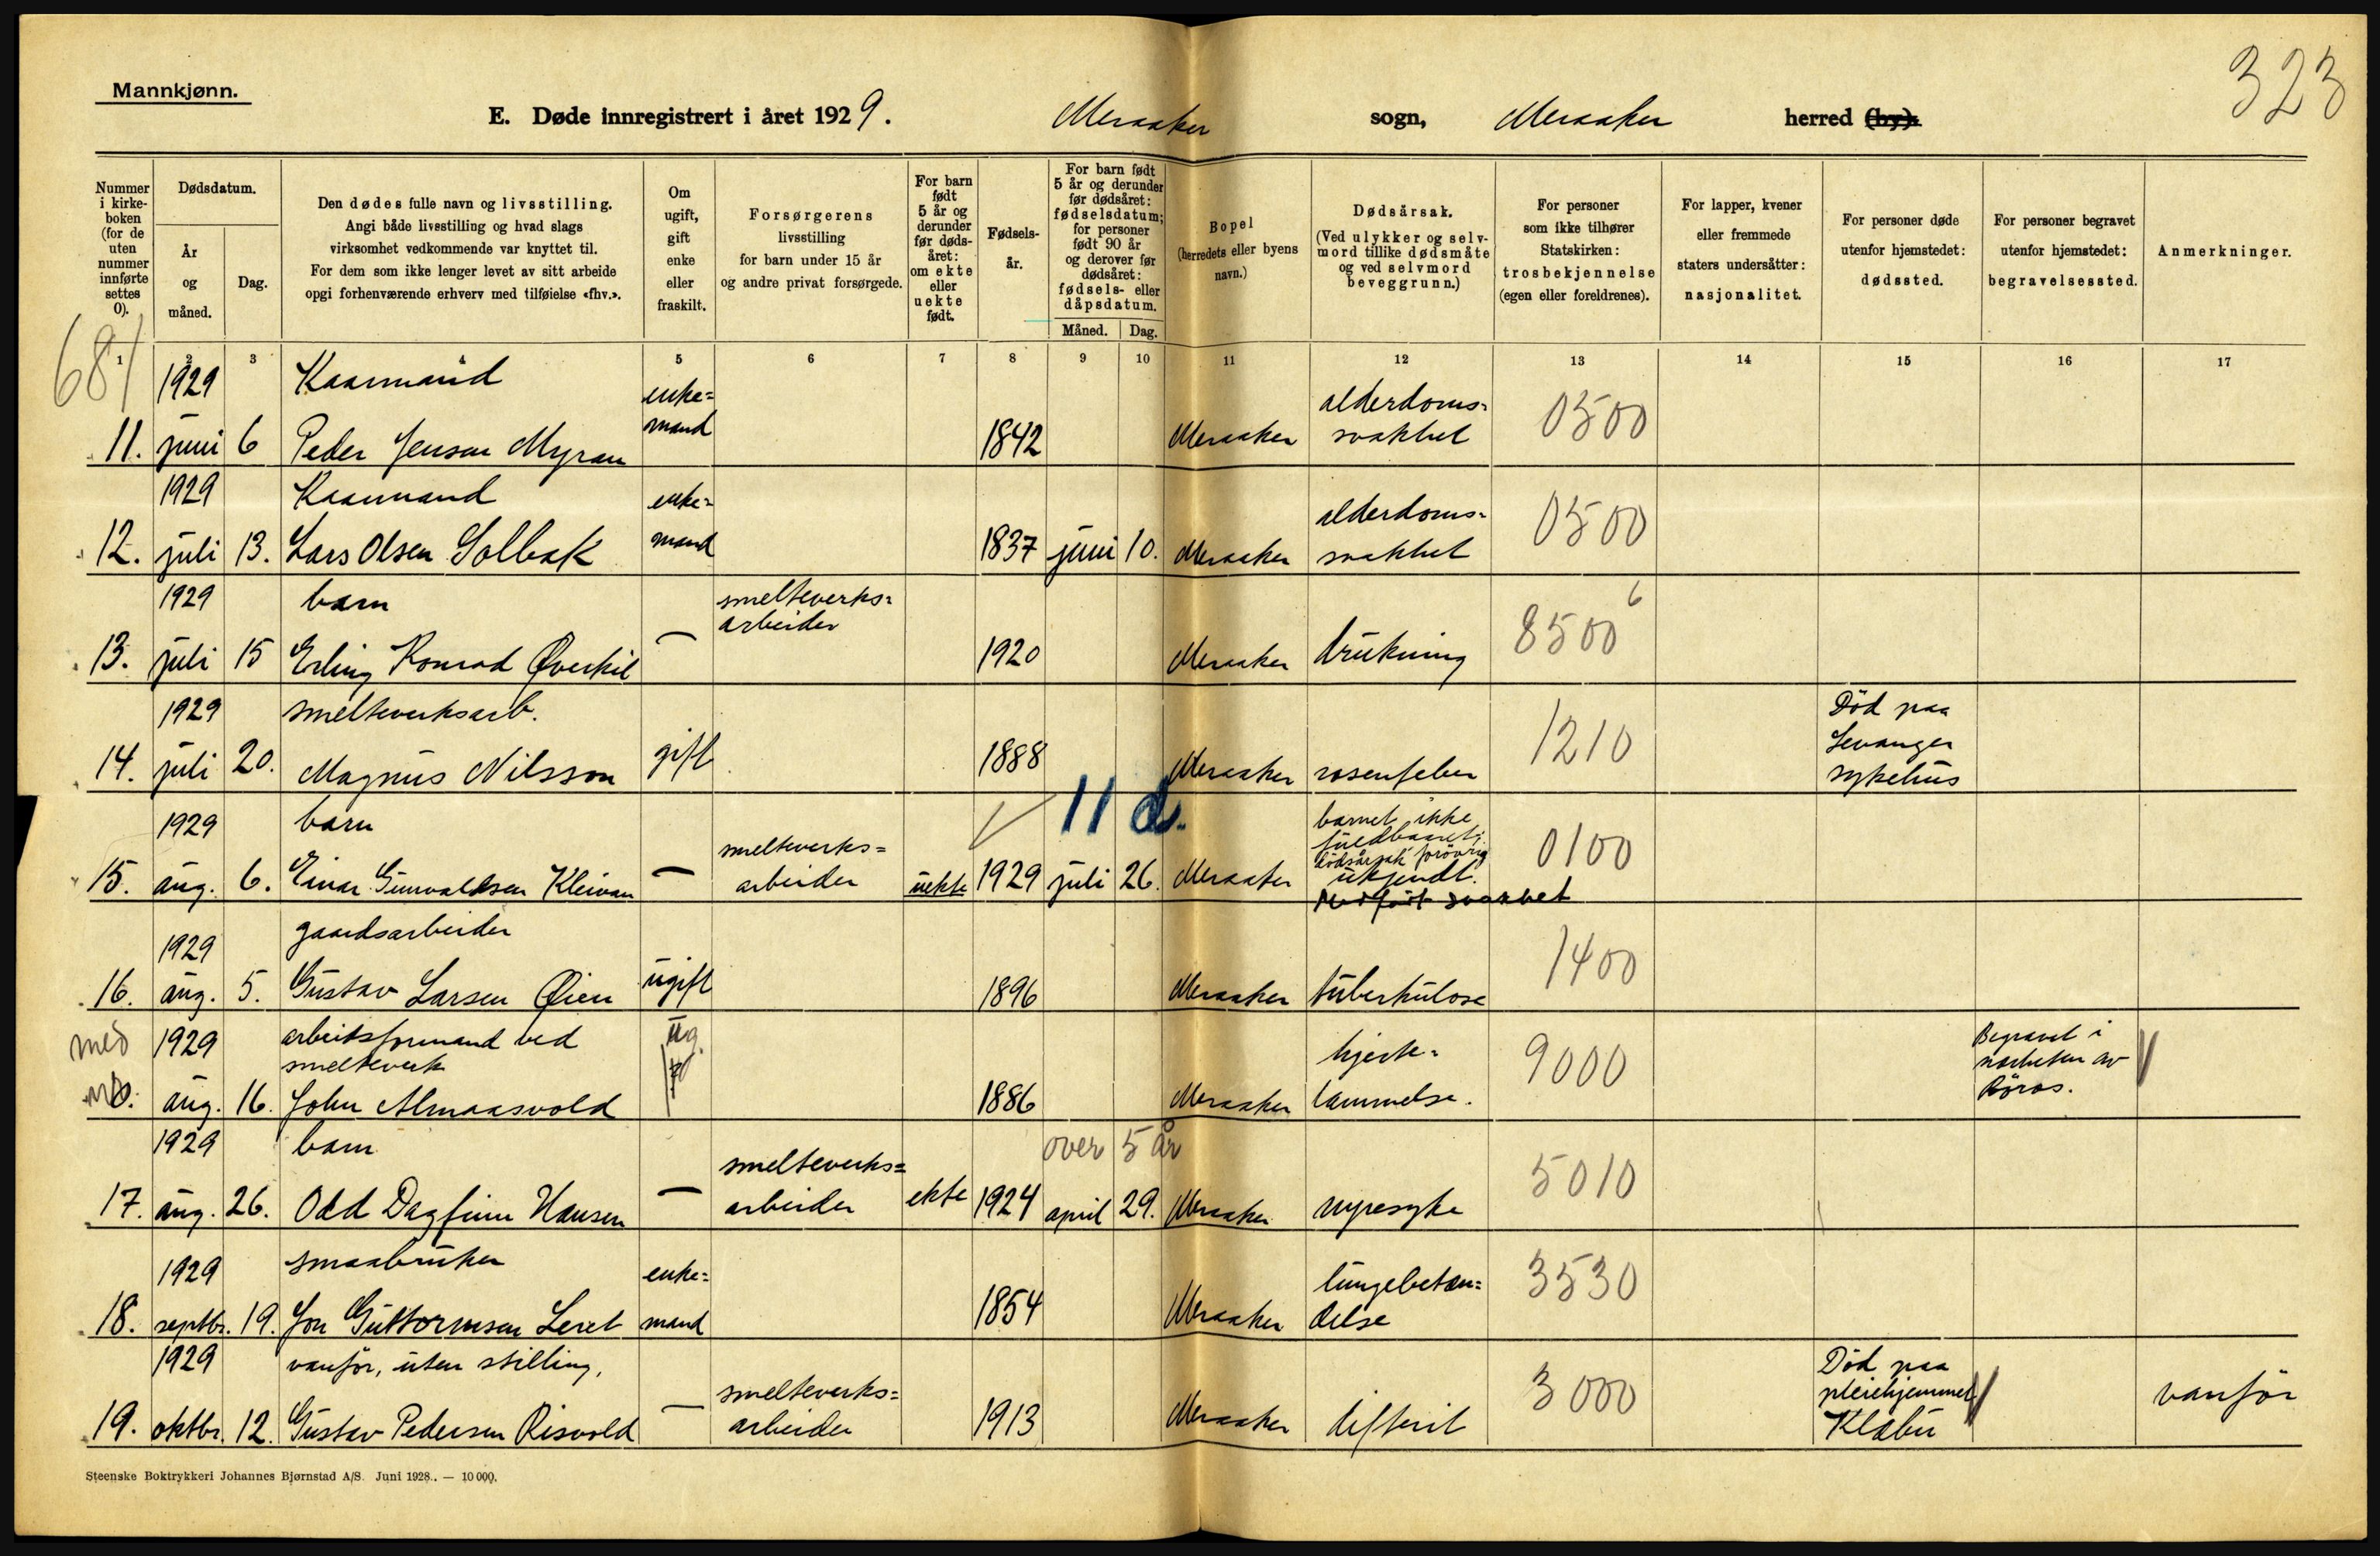 323
Mannkjønn.
E. Døde innregistrert i året 1929. Meraaker sogn, Meraaker herred (by).
Nummer i kirkeboken (for de uten nummer innførte settes 0).
Dødsdatum.
År og måned.
Dag.
Den dødes fulle navn og livsstilling.
Angi både livsstilling og hvad slags
virksomhet vedkommende var knyttet til.
For dem som ikke lenger levet av sitt arbeide
opgi forhenværende erhverv med tilføielse «fhv.».
Om ugift, gift enke eller fraskilt.
Forsørgerens livsstilling for barn under 15 år og andre privat forsørgede.
For barn født 5 år og derunder før dødsåret: om ekte eller uekte født.
Fødselsår.
For barn født 5 år og derunder før dødsåret: fødselsdatum; for personer født 90 år og derover før dødsåret: fødsels- eller dåpsdatum.
Måned. Dag.
Bopel (herredets eller byens navn.)
Dødsårsak. (Ved ulykker og selvmord tillike dødsmåte og ved selvmord beveggrunn.)
For personer som ikke tilhører Statskirken: trosbekjennelse (egen eller foreldrenes).
For lapper, kvener eller fremmede staters undersåtter: nasjonalitet.
For personer døde utenfor hjemstedet: dødssted.
For personer begravet utenfor hjemstedet: begravelsessted.
Anmerkninger.
1 2 3 4 5 6 7 8 9 10 11 12 13 14 15 16 17
681
1929 Kaarmand enke= alderdoms=
11. juni 6 Peder Jensen Myran mand 1842 Meraaker svakhet 0500
1929 Kaarmand enke= alderdoms=
12. juli 13. Lars Olsen Solbak mand 1837 juni 10. Meraaker svakhet 0500
1929 barn smelteverks= 6
arbeider
13. juli 15 Erling Konrad Øverkil — 1920 Meraaker drukning 8500
1929 smelteverksarb. Död paa
Levanger
14. juli 20. Magnus Nilsson gift 1888 Meraaker rosenfeber 1210 sykehus
11 d.
1929 barn smelteverks= barnet ikke
fuldbaaret;
dödsårsak forövrig
15. aug. 6. Einar Gunvaldsen Kleivan — arbeider uekte 1929 juli 26. Meraaker ukjendt. 0100
Medfödt svakhet
1929 gaardsarbeider
16. aug. 5. Gustav Larsen Øien ugift 1896 Meraaker tuberkulose 1400
med 1929 arbeidsformand ved ug. hjerte= Begravet i
smelteverk nærheten av
no. aug. 16. John Almaasvold 1886 Meraaker lammelse. 9000 Röros.
1929 barn smelteverks= over 5 år
17. aug. 26. Odd Dagfinn Hansen — arbeider ekte 1924 april 29. Meraaker nyresyke 5010
1929 smaabruker enke= lungebetæn=
18. septbr. 19. Jon Guttormsen Leret mand 1854 Meraaker delse 3530
1929 vanför, uten stilling. smelteverks= Död paa
pleiehjemmet
19. oktbr. 12. Gustav Pedersen Risvold — arbeider 1913 Meraaker difterit 3000 Klæbu vanför
Steenske Boktrykkeri Johannes Bjørnstad A/S. Juni 1928. — 10 000.